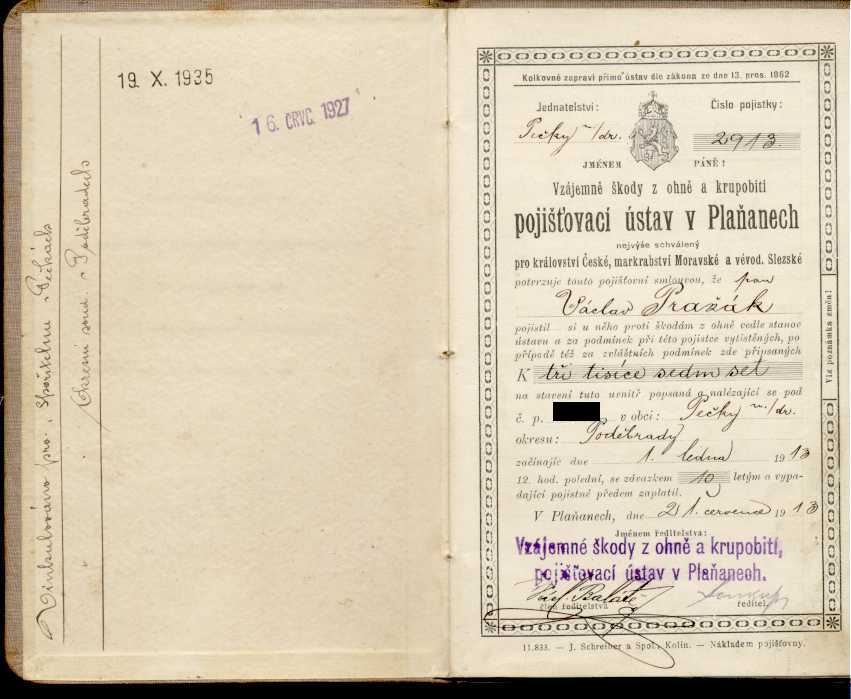 19. X. 1935
16. ČRVC. 1927
Vinkulováno pro Spořitelnu v Pečkách
Okresní soud v Poděbradech
Kolkovné zapraví přímo ústav dle zákona ze dne 13. pros. 1862
Jednatelství:
Číslo pojistky:
Pečky n/dr.
2913.
JMÉNEM PÁNĚ!
Vzájemně škody z ohně a krupobití
pojišťovací ústav v Plaňanech
nejvýše schválený
pro království České, markrabství Moravské a vévod. Slezské
potvrzuje touto pojišťovní smlouvou, že pan
Václav Pražák
pojistil si u něho proti škodám z ohně vedle stanov
ústavu a za podmínek při této pojistce vytištěných, po
případě též za zvláštních podmínek zde připsaných
K tři tisíce sedm set
na stavení tuto uvnitř popsaná a nalézající se pod
č. p. v obci: Pečky n./dr.
okresu: Poděbrady
začínajíc dne 1. ledna 1913
12. hod. polední, se závazkem 10 letým a vypa-
dající pojistné předem zaplatil.
V Plaňanech, dne 21. července 1913
Jménem ředitelstva:
Vzájemné škody z ohně a krupobití,
pojišťovací ústav v Plaňanech.
člen ředitelstva
ředitel.
Viz poznámka změn!
11.833. — J. Schreiber a Spol., Kolín. — Nákladem pojišťovny.